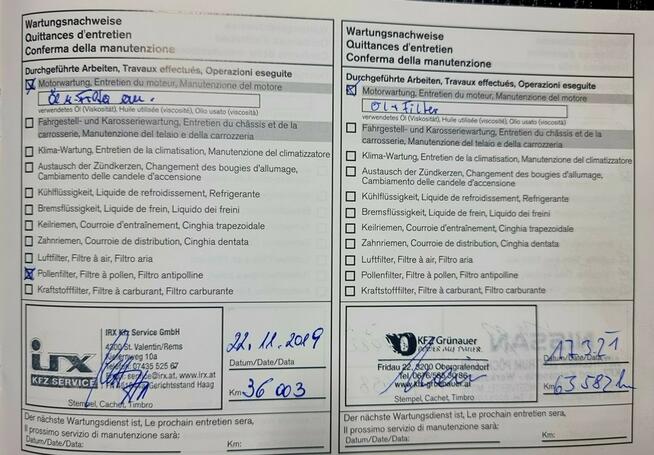 Wartungsnachweise
Quittances d'entretien
Conferma della manutenzione
Durchgeführte Arbeiten, Travaux effectués, Operazioni eseguite
Motorwartung, Entretien du moteur, Manutenzione del motore
Öl + Filter
verwendetes Öl (Viskosität), Huile utilisée (viscosité), Olio usato (viscosità)
Fahrgestell- und Karosseriewartung, Entretien du châssis et de la
carrosserie, Manutenzione del telaio e della carrozzeria
Klima-Wartung, Entretien de la climatisation, Manutenzione del climatizzatore
Austausch der Zündkerzen, Changement des bougies d'allumage,
Cambiamento delle candele d'accensione
Kühlflüssigkeit, Liquide de refroidissement, Refrigerante
Bremsflüssigkeit, Liquide de frein, Liquido dei freini
Keilriemen, Courroie d'entraînement, Cinghia trapezoidale
Zahnriemen, Courroie de distribution, Cinghia dentata
Luftfilter, Filtre à air, Filtro aria
Pollenfilter, Filtre à pollen, Filtro antipolline
Kraftstofffilter, Filtre à carburant, Filtro carburante
irx
KFZ SERVICE
IRX Kfz Service GmbH
4300 St. Valentin/Rems
10a
Telefon: 07435 525 67
service@irx.at, www.irx.at
Gerichtsstand Haag
Stempel, Cachet, Timbro
22.11.2019
Datum/Date/Data:
Km: 36 003
Der nächste Wartungsdienst ist, Le prochain entretien sera,
Il prossimo servizio di manutenzione sarà:
Datum/Date/Data:
Km:
Wartungsnachweise
Quittances d'entretien
Conferma della manutenzione
Durchgeführte Arbeiten, Travaux effectués, Operazioni eseguite
Motorwartung, Entretien du moteur, Manutenzione del motore
Öl + Filter
verwendetes Öl (Viskosität), Huile utilisée (viscosité), Olio usato (viscosità)
Fahrgestell- und Karosseriewartung, Entretien du châssis et de la
carrosserie, Manutenzione del telaio e della carrozzeria
Klima-Wartung, Entretien de la climatisation, Manutenzione del climatizzatore
Austausch der Zündkerzen, Changement des bougies d'allumage,
Cambiamento delle candele d'accensione
Kühlflüssigkeit, Liquide de refroidissement, Refrigerante
Bremsflüssigkeit, Liquide de frein, Liquido dei freini
Keilriemen, Courroie d'entraînement, Cinghia trapezoidale
Zahnriemen, Courroie de distribution, Cinghia dentata
Luftfilter, Filtre à air, Filtro aria
Pollenfilter, Filtre à pollen, Filtro antipolline
Kraftstofffilter, Filtre à carburant, Filtro carburante
KFZ Grünauer
Fridau 22, 3200 Obergrafendorf
www.kfz-gruenauer.at
Stempel, Cachet, Timbro
Datum/Date/Data:
Km: 63582 km
Der nächste Wartungsdienst ist, Le prochain entretien sera,
Il prossimo servizio di manutenzione sarà:
Datum/Date/Data:
Km: